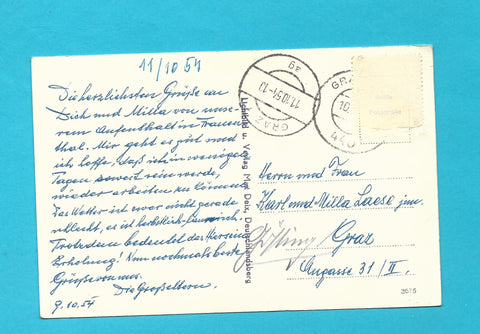 11/10 54
Die herzlichsten Grüße an
Dich und Milla von unse-
rem Aufenthalt in Frauen-
thal. Mir geht es gut und
ich hoffe, daß ich in wenigen
Tagen soweit sein werde,
wieder arbeiten zu können.
Das Wetter ist zwar nicht gerade
schlecht, es ist herbstlich
Trotzdem bedeutet das Hiersein
Erholung! Nun nochmals beste
Grüße von uns.
Die Großeltern.
9.10.54
Lichtbild u. Verlag Max Deix, Deutschlandsberg
GRAZ
11.10.54-12
GRAZ
Herrn und Frau
Karl und Milla Laese jun.
Graz
Augasse 31/II.
3675